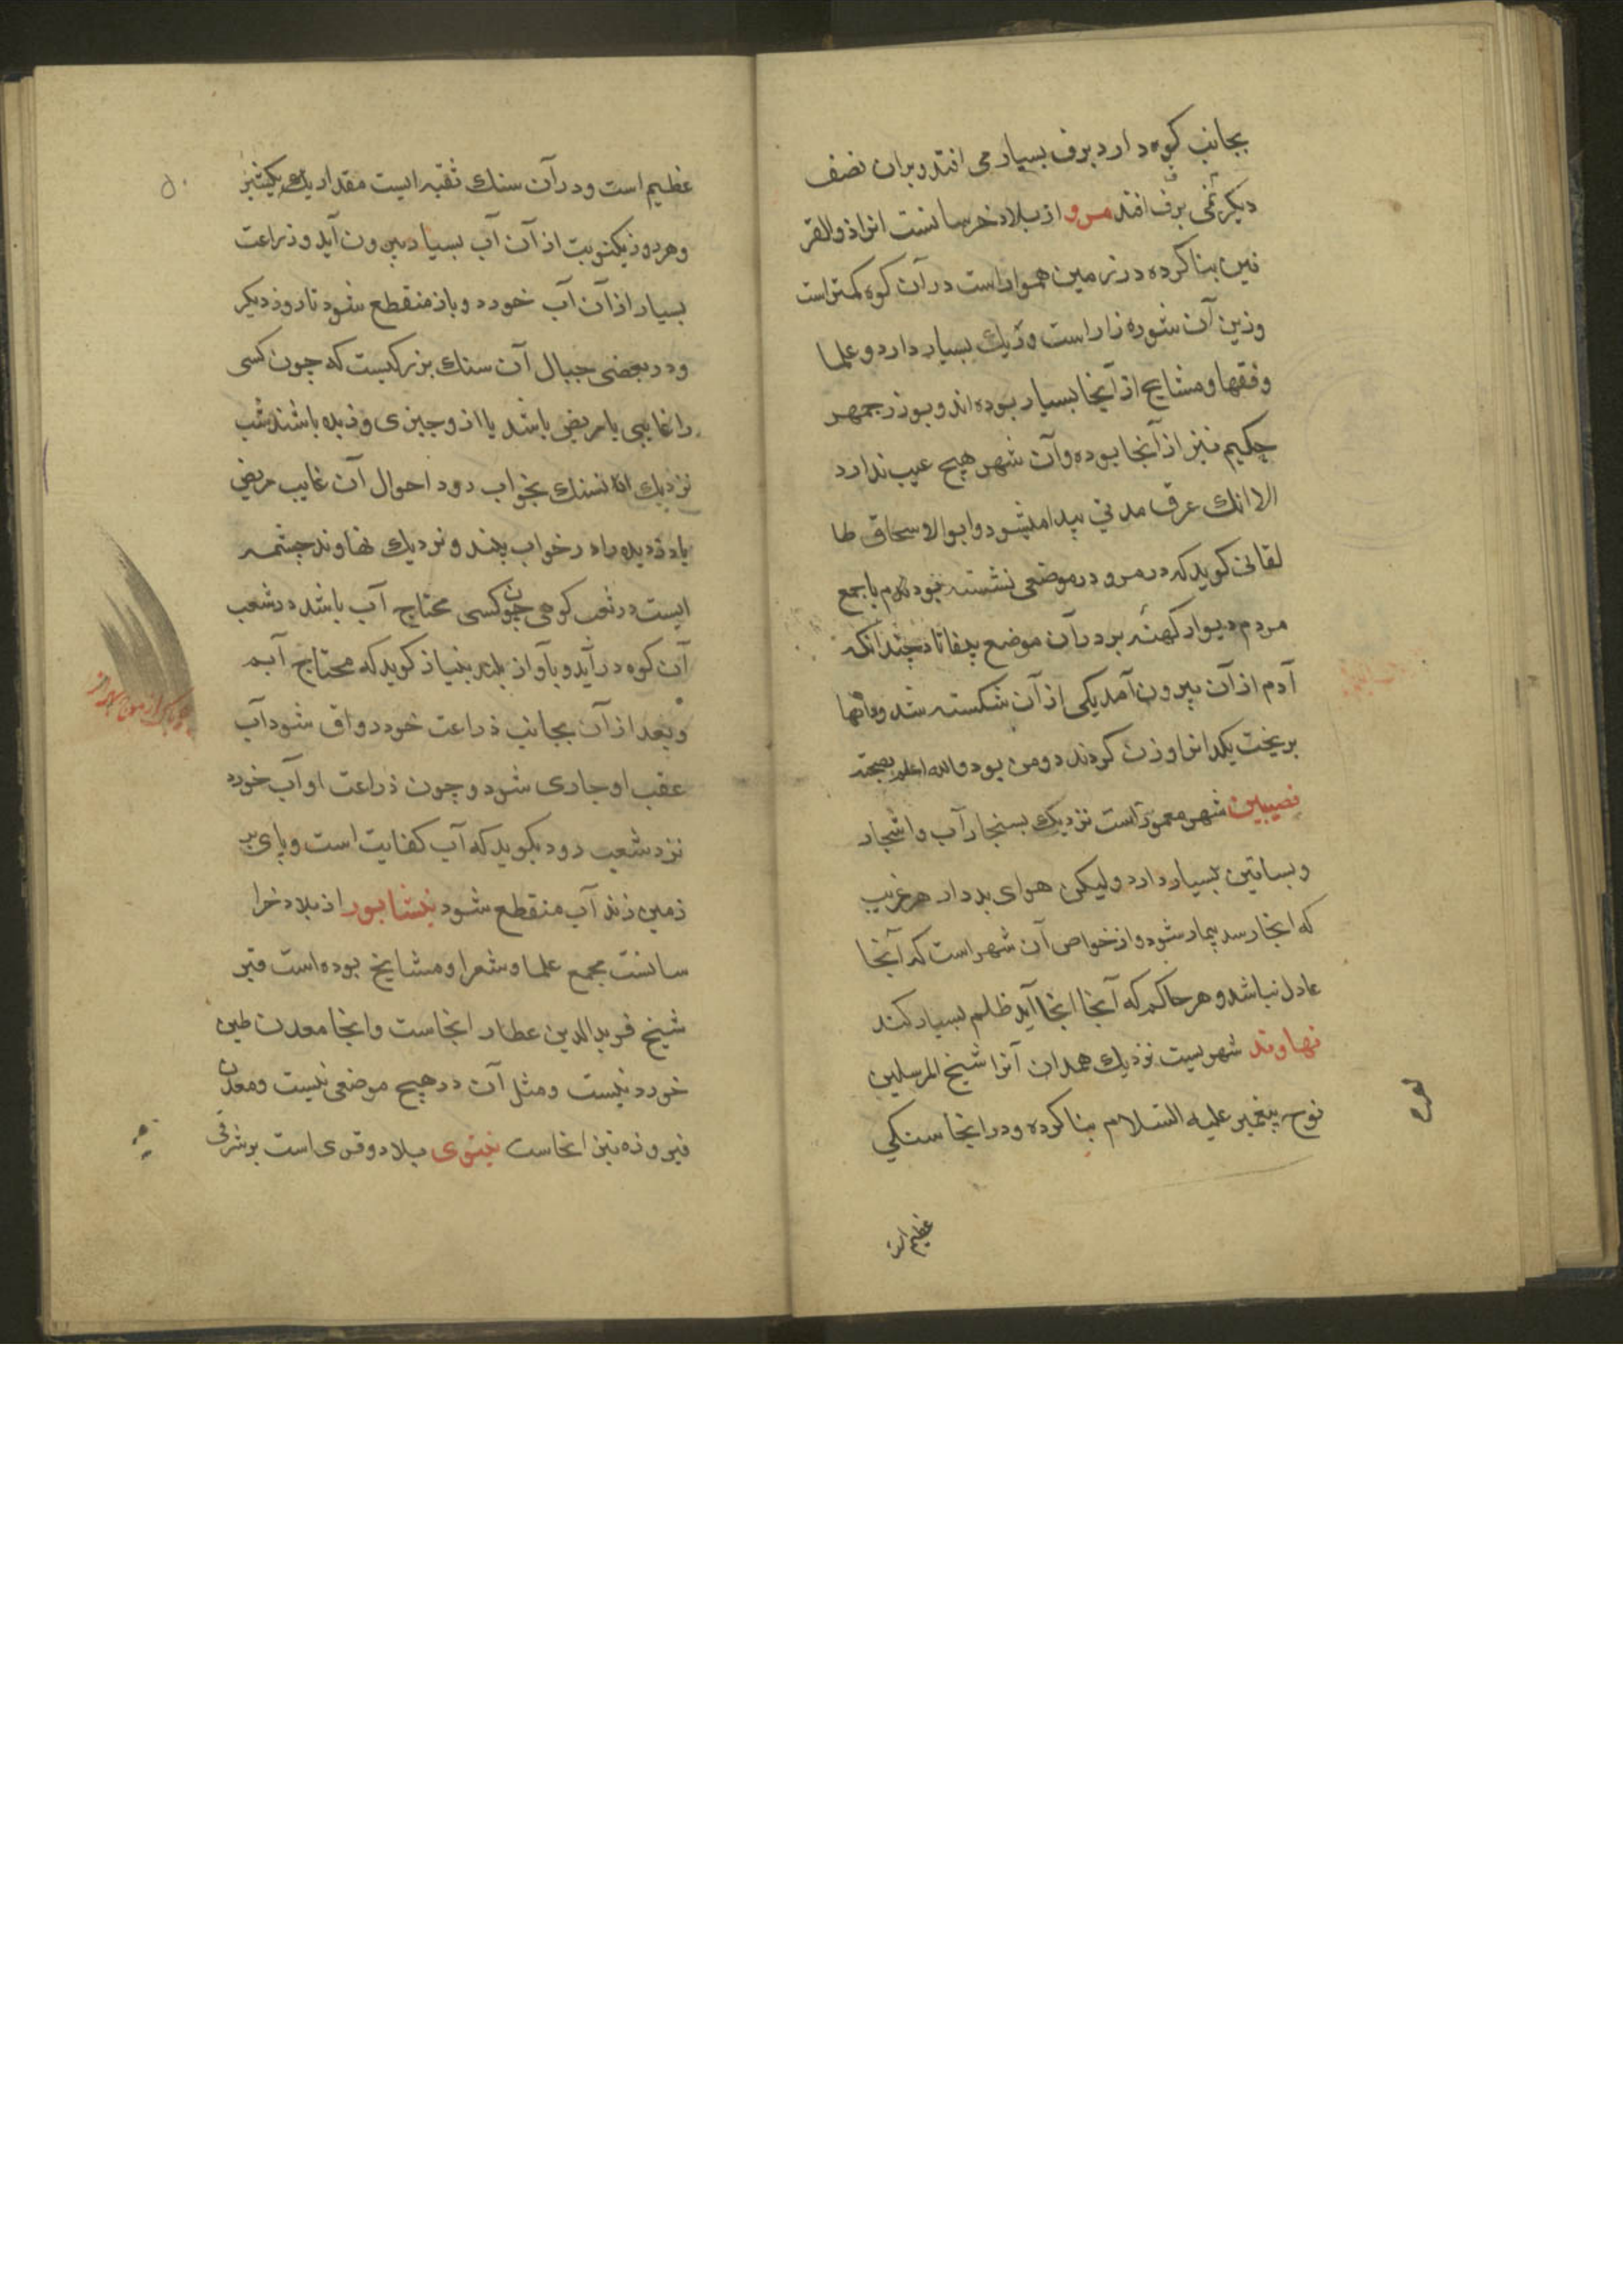 بجانب کوه دارد برف بسیار می افتد و بران نصف
دیکر نمی برف افتد مرو از بلاد خرسانست انرا ذوالقر
نین بنا کرده در زمین هموار است در آن کوه کمتر است
وزین آن شوره زار است و ریك بسیار دارد و علما
و فقها و مشایخ از آنجا بسیار بوده اند و بوزرجمهر
حکیم نیز از آنجا بوده و آن شهر هیچ عیب ندارد
الا انك عرق مدنی پیدا میشود و ابوالاسحاق طا
لقانی کوید که در مرو در موضعی نشسته بودم با جمع
مردم دیوار کهنه بر در آن موضع بیفتاد چندانکه
آدم از آن بیرون آمد یکی از آن شکسته شد و دانها
بریخت یکدانرا وزن کردند دو من بود والله اعلم بصحته
نصیبین شهر معمور است نزدیك بسنجار آب و اشجار
و بساتین بسیار دارد ولیکن هوای بد دارد هر غریب
که انجا رسد بیمار شود و از خواص آن شهر است که آنجا
عادل نباشد و هر حاکم که آنجا انجا آید ظلم بسیار کند
نهاوند شهریست نزدیك همدان آنرا شیخ المرسلین
نوح پیغمبر علیه السلام بنا کرده و در انجا سنکی
عظیم است
عظیم است و در آن سنك ثقبه ایست مقدار یك یکشبر
و هر روز یکنوبت از آن آب بسیار بیرون آید و زراعت
بسیار از آن آب خورد و باز منقطع شود تا روز دیکر
و در بعضی جبال آن سنك بزرکیست که چون کسی
را غایبی یا مریض باشد یا از و چیزی دزدیده باشند شب
نزدیك انسنك بخواب رود احوال آن غایب مریض
یا دزدیده را در خواب بیند و نزدیك نهاوند چشمه
ایست در شعب کوهی چون کسی محتاج آب باشد در شعب
آن کوه در آید و بآواز بلند بنیاز کوید که محتاج آبم
و بعد از آن بجانب ذراعت خود رواق شود آب
عقب او جاری شود و چون ذراعت او آب خورد
نزد شعب رود بکوید که آب کفایت است و پای بر
زمین زند آب منقطع شود نیشابور از بلاد خرا
سانست مجمع علما و شعرا و مشایخ بوده است قبر
شیخ فرید الدین عطار انجاست و انجا معدن طین
خوردنیست و مثل آن در هیچ موضعی نیست و معدن
فیروزه نیز انجاست نینوی بلاد و قری است بر شرقی